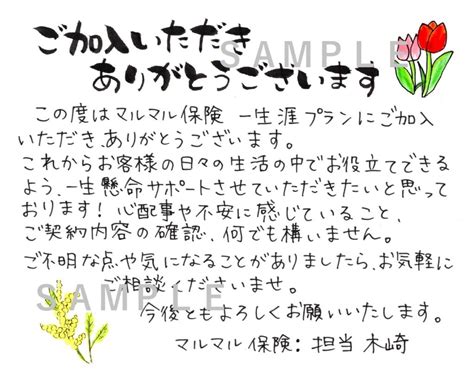 ご加入いただき
SAMPLE
ありがとうございます
この度はマルマル保険 一生涯プランにご加入
いただき、ありがとうございます。
これからお客様の日々の生活の中でお役立てできる
よう、一生懸命サポートさせていただきたいと思って
おります！心配事や不安に感じていること、
ご契約内容の確認、何でも構いません。
ご不明な点や気になることがありましたら、お気軽に
ご相談くださいませ。
SAMPLE
今後ともよろしくお願いいたします。
マルマル保険：担当 木崎